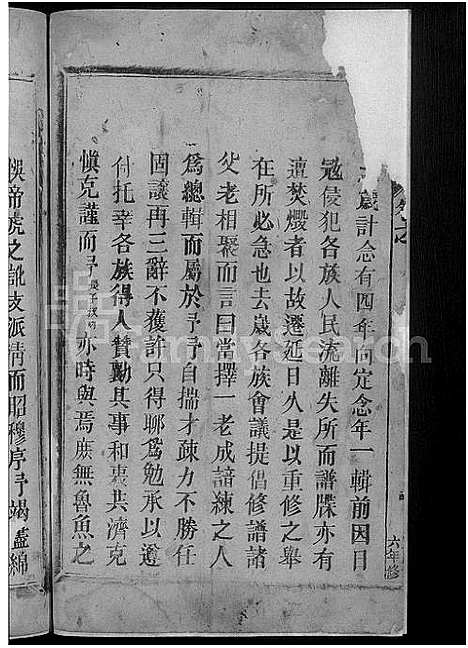 歲計念有四年向定念年一輯前因日
冦侵犯各族人民流離失所而譜牒亦有
遭焚燬者以故遷延日久是以重修之舉
在所必急也去歲各族會議提倡修譜諸
父老相聚而言曰當擇一老成諳練之人
爲總輯而屬於予予自揣才疎力不勝任
固讓再三辭不獲許只得聊爲勉承以遵
付托幸各族得人贊勷其事和衷共濟克
愼克謹而予亦時與焉庶無魯魚之
悞帝虎之訛支派淸而昭穆序予竭盡綿
六年修